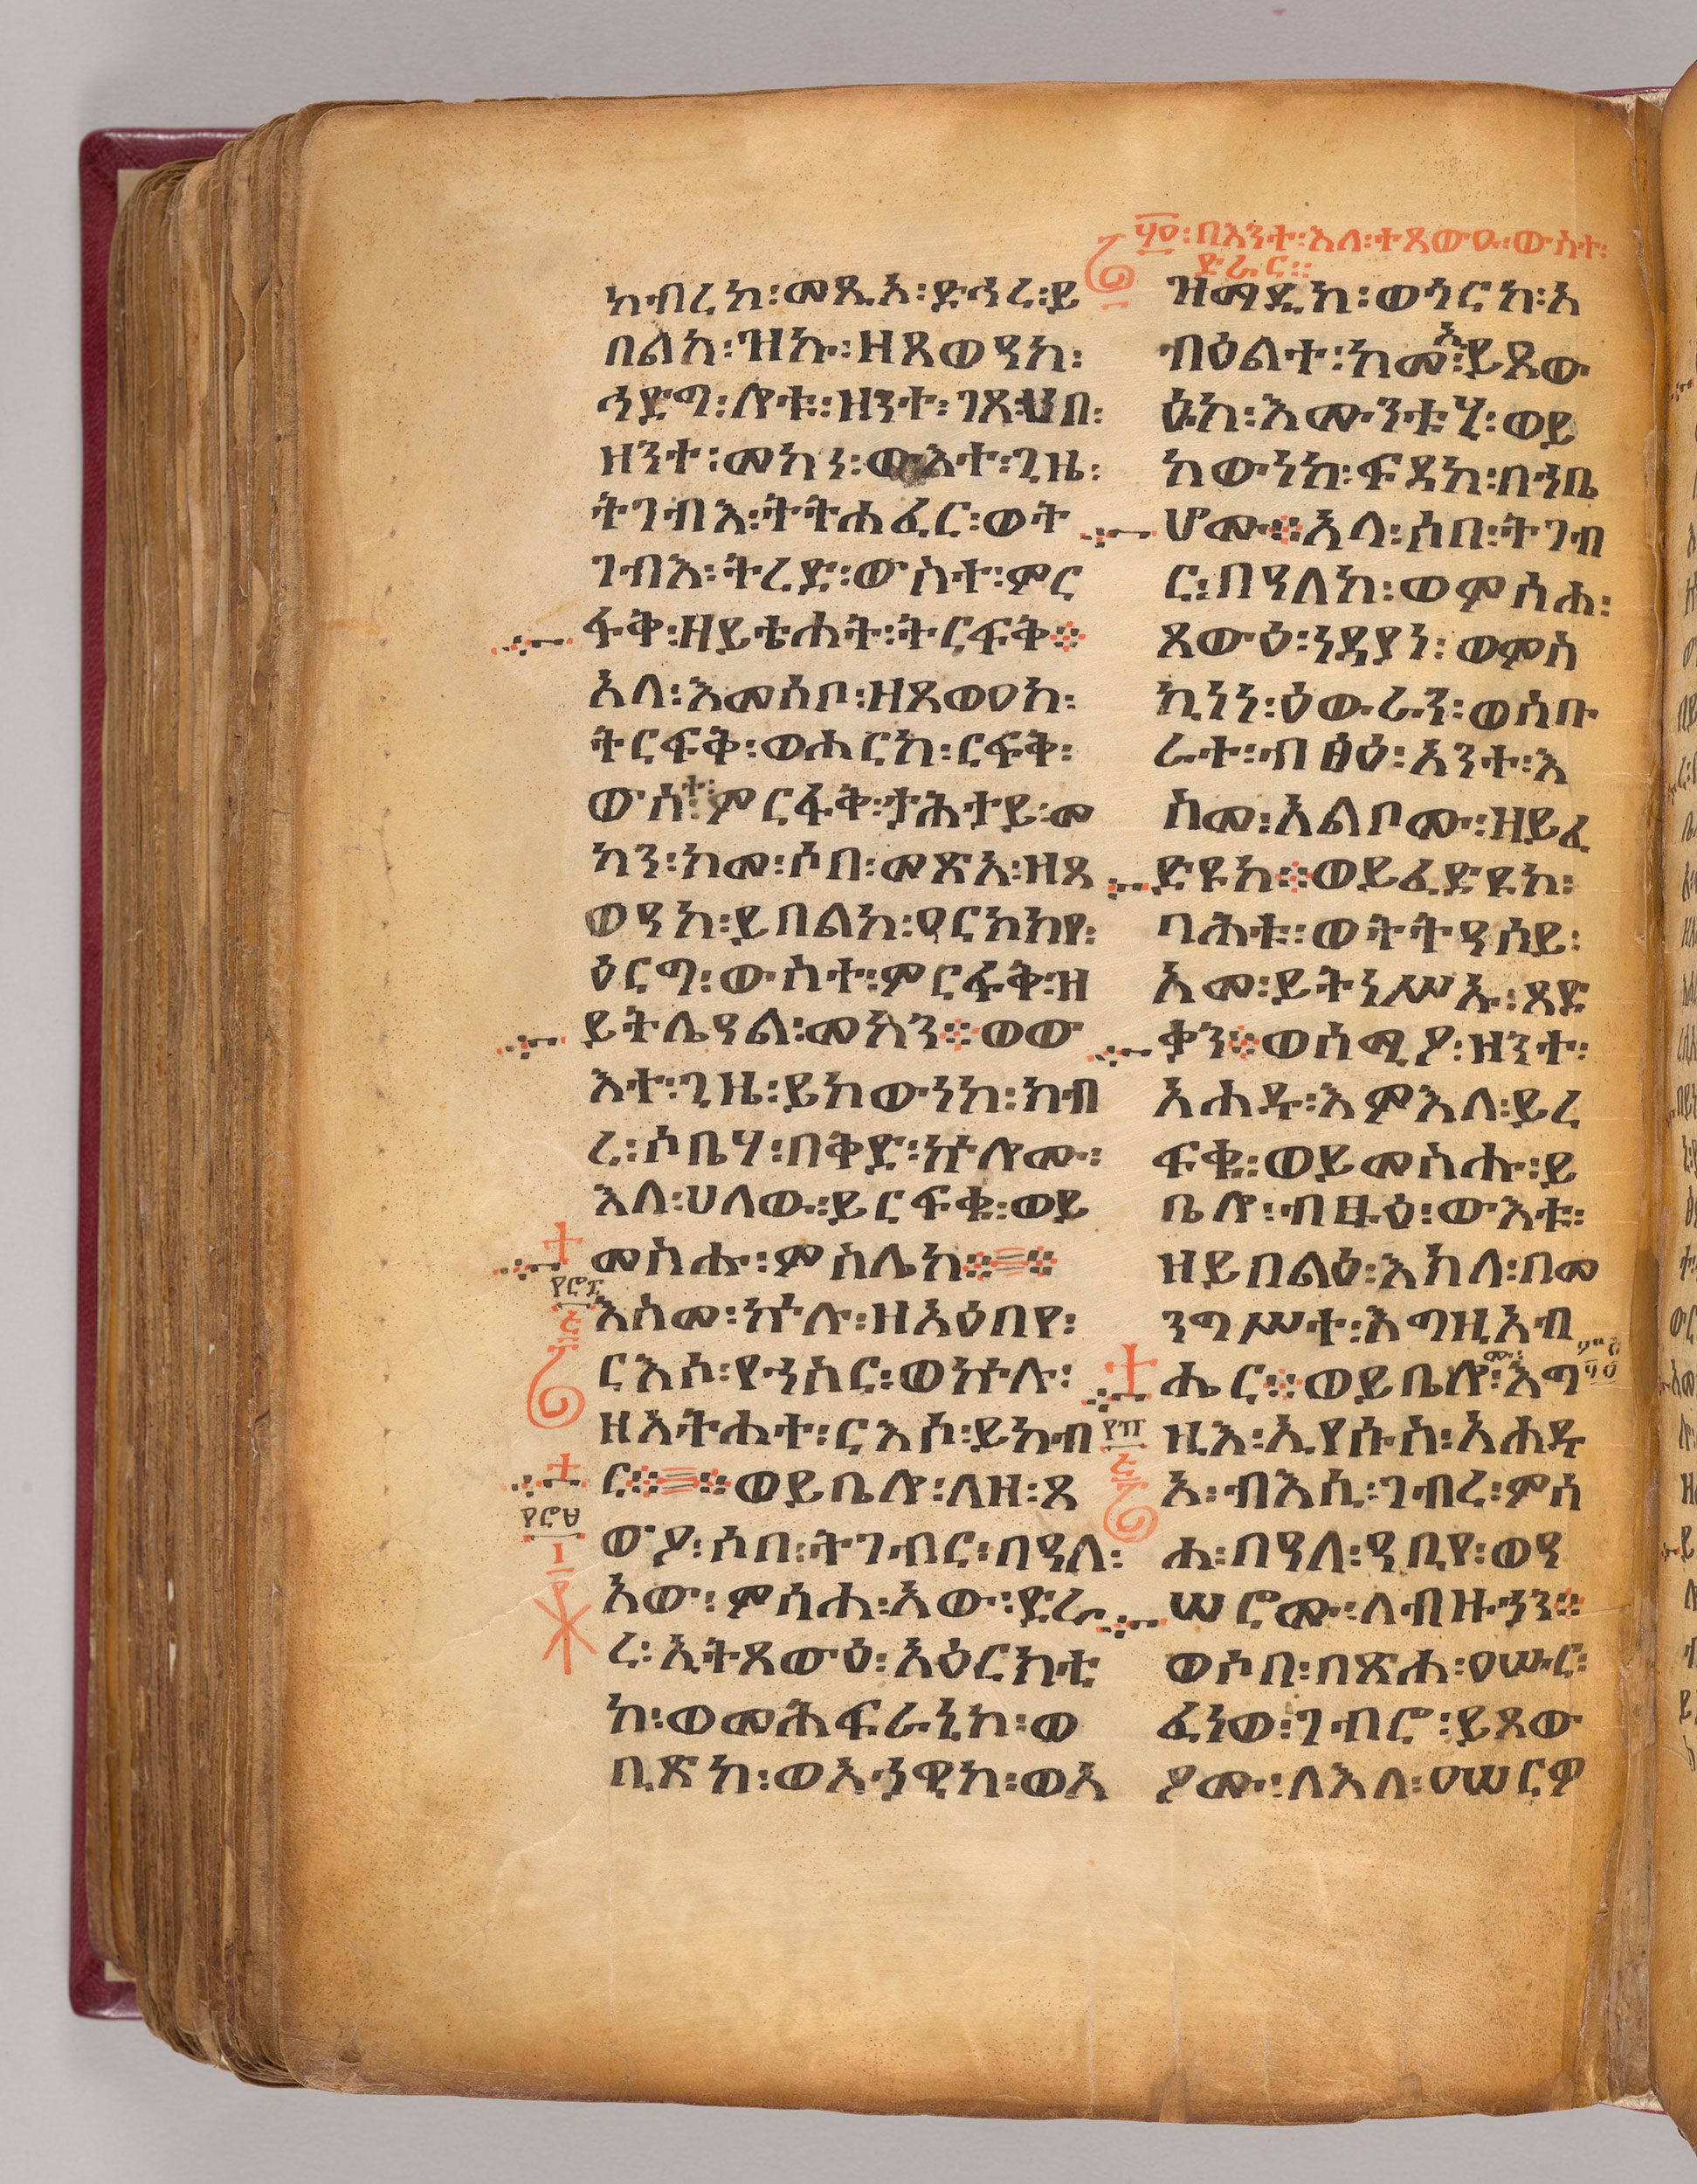 ፶፬፡በእንተ፡እለ፡ተጸውዑ፡ውስተ፡
ድራር፡፡
ክብረከ፡መጺአ፡ድኅረ፡ይ
በልከ፡ዝኩ፡ዘጸወዓከ፡
ኅድግ፡ሎቱ፡ዘንተ፡ገጸ፡
ዘንተ፡መካነ፡ውእተ፡ጊዜ፡
ትገብእ፡ትትሐፈር፡ወት
ገብእ፡ትረድ፡ውስተ፡ምር
ፋቅ፡ዘይቴሐት፡ትርፍቅ።
አላ፡እመሰቦ፡ዘጸወዐከ፡
ትርፍቅ፡ወሐርከ፡ርፍቅ፡
ውስተ፡ምርፋቅ፡ታሕታይ፡መ
ካን፡ከመ፡ሶበ፡መጽአ፡ዘጸ
ወዓከ፡ይበልከ፡ዐርክከየ፡
ዕርግ፡ውስተ፡ምርፋቅ፡ዘ
ይትሌዓል፡መካን።ወው
እተ፡ጊዜ፡ይከውነከ፡ክብ
ረ፡ሶቤሃ፡በቅድመ፡ኵሎሙ፡
እለ፡ሀለው፡ይርፍቁ፡ወይ
መስሑ፡ምስሌከ።
እስመ፡ኵሉ፡ዘአዕበየ፡
ርእሶ፡የኀስር፡ወኵሉ፡
ዘአትሐተ፡ርእሶ፡ይከብ
ር።ወይቤሎ፡ለዘ፡ጸ
ውዖ፡ሶበ፡ትገብር፡በዓለ፡
አው፡ምሳሐ፡አው፡ድራ
ረ፡ኢትጸውዕ፡አዕርክቲ
ከ፡ወመሕፍራኒከ፡ወ
ቢጽከ፡ወአኀዊከ፡ወአ
ዝማዲከ፡ወጎርከ፡አ
ብዕልተ፡ከመ፡ኢይጸው
ዑከ፡እሙንቱሂ፡ወይ
ከውነከ፡ፍዳከ፡በኀቤ
ሆሙ።አላ፡ሰበ፡ትገብ
ር፡በዓለከ፡ወምሳሐ፡
ጸውዕ፡ነዳያነ፡ወምስ
ኪነነ፡ዕውራነ፡ወሰቡ
ራተ፡ብፁዕ፡አንተ፡እ
ስመ፡አልቦሙ፡ዘይፈ
ድዩከ።ወይፈድዩከ፡
ባሕቱ፡ወትትዓሰይ፡
አመ፡ይትነሥኡ፡ጻድ
ቃን።ወሰሚዖ፡ዘንተ፡
አሐዱ፡እምእለ፡ይረ
ፍቁ፡ወይመስሑ፡ይ
ቤሎ፡ብፁዕ፡ውእቱ፡
ዘይበልዕ፡እክለ፡በመ
ንግሥተ፡እግዚአብ
ሔር።ወይቤሎሙ፡እግ
ዚእ፡ኢየሱስ፡አሐዱ
አ፡ብእሲ፡ገብረ፡ምሳ
ሐ፡በዓለ፡ዓቢየ፡ወዓ
ሠሮሙ፡ለብዙኃን።
ወሶበ፡በጽሐ፡ዐሡር፡
ፈነወ፡ገብሮ፡ይጸው
ዖሙ፡ለእለ፡ዐሠርዎ